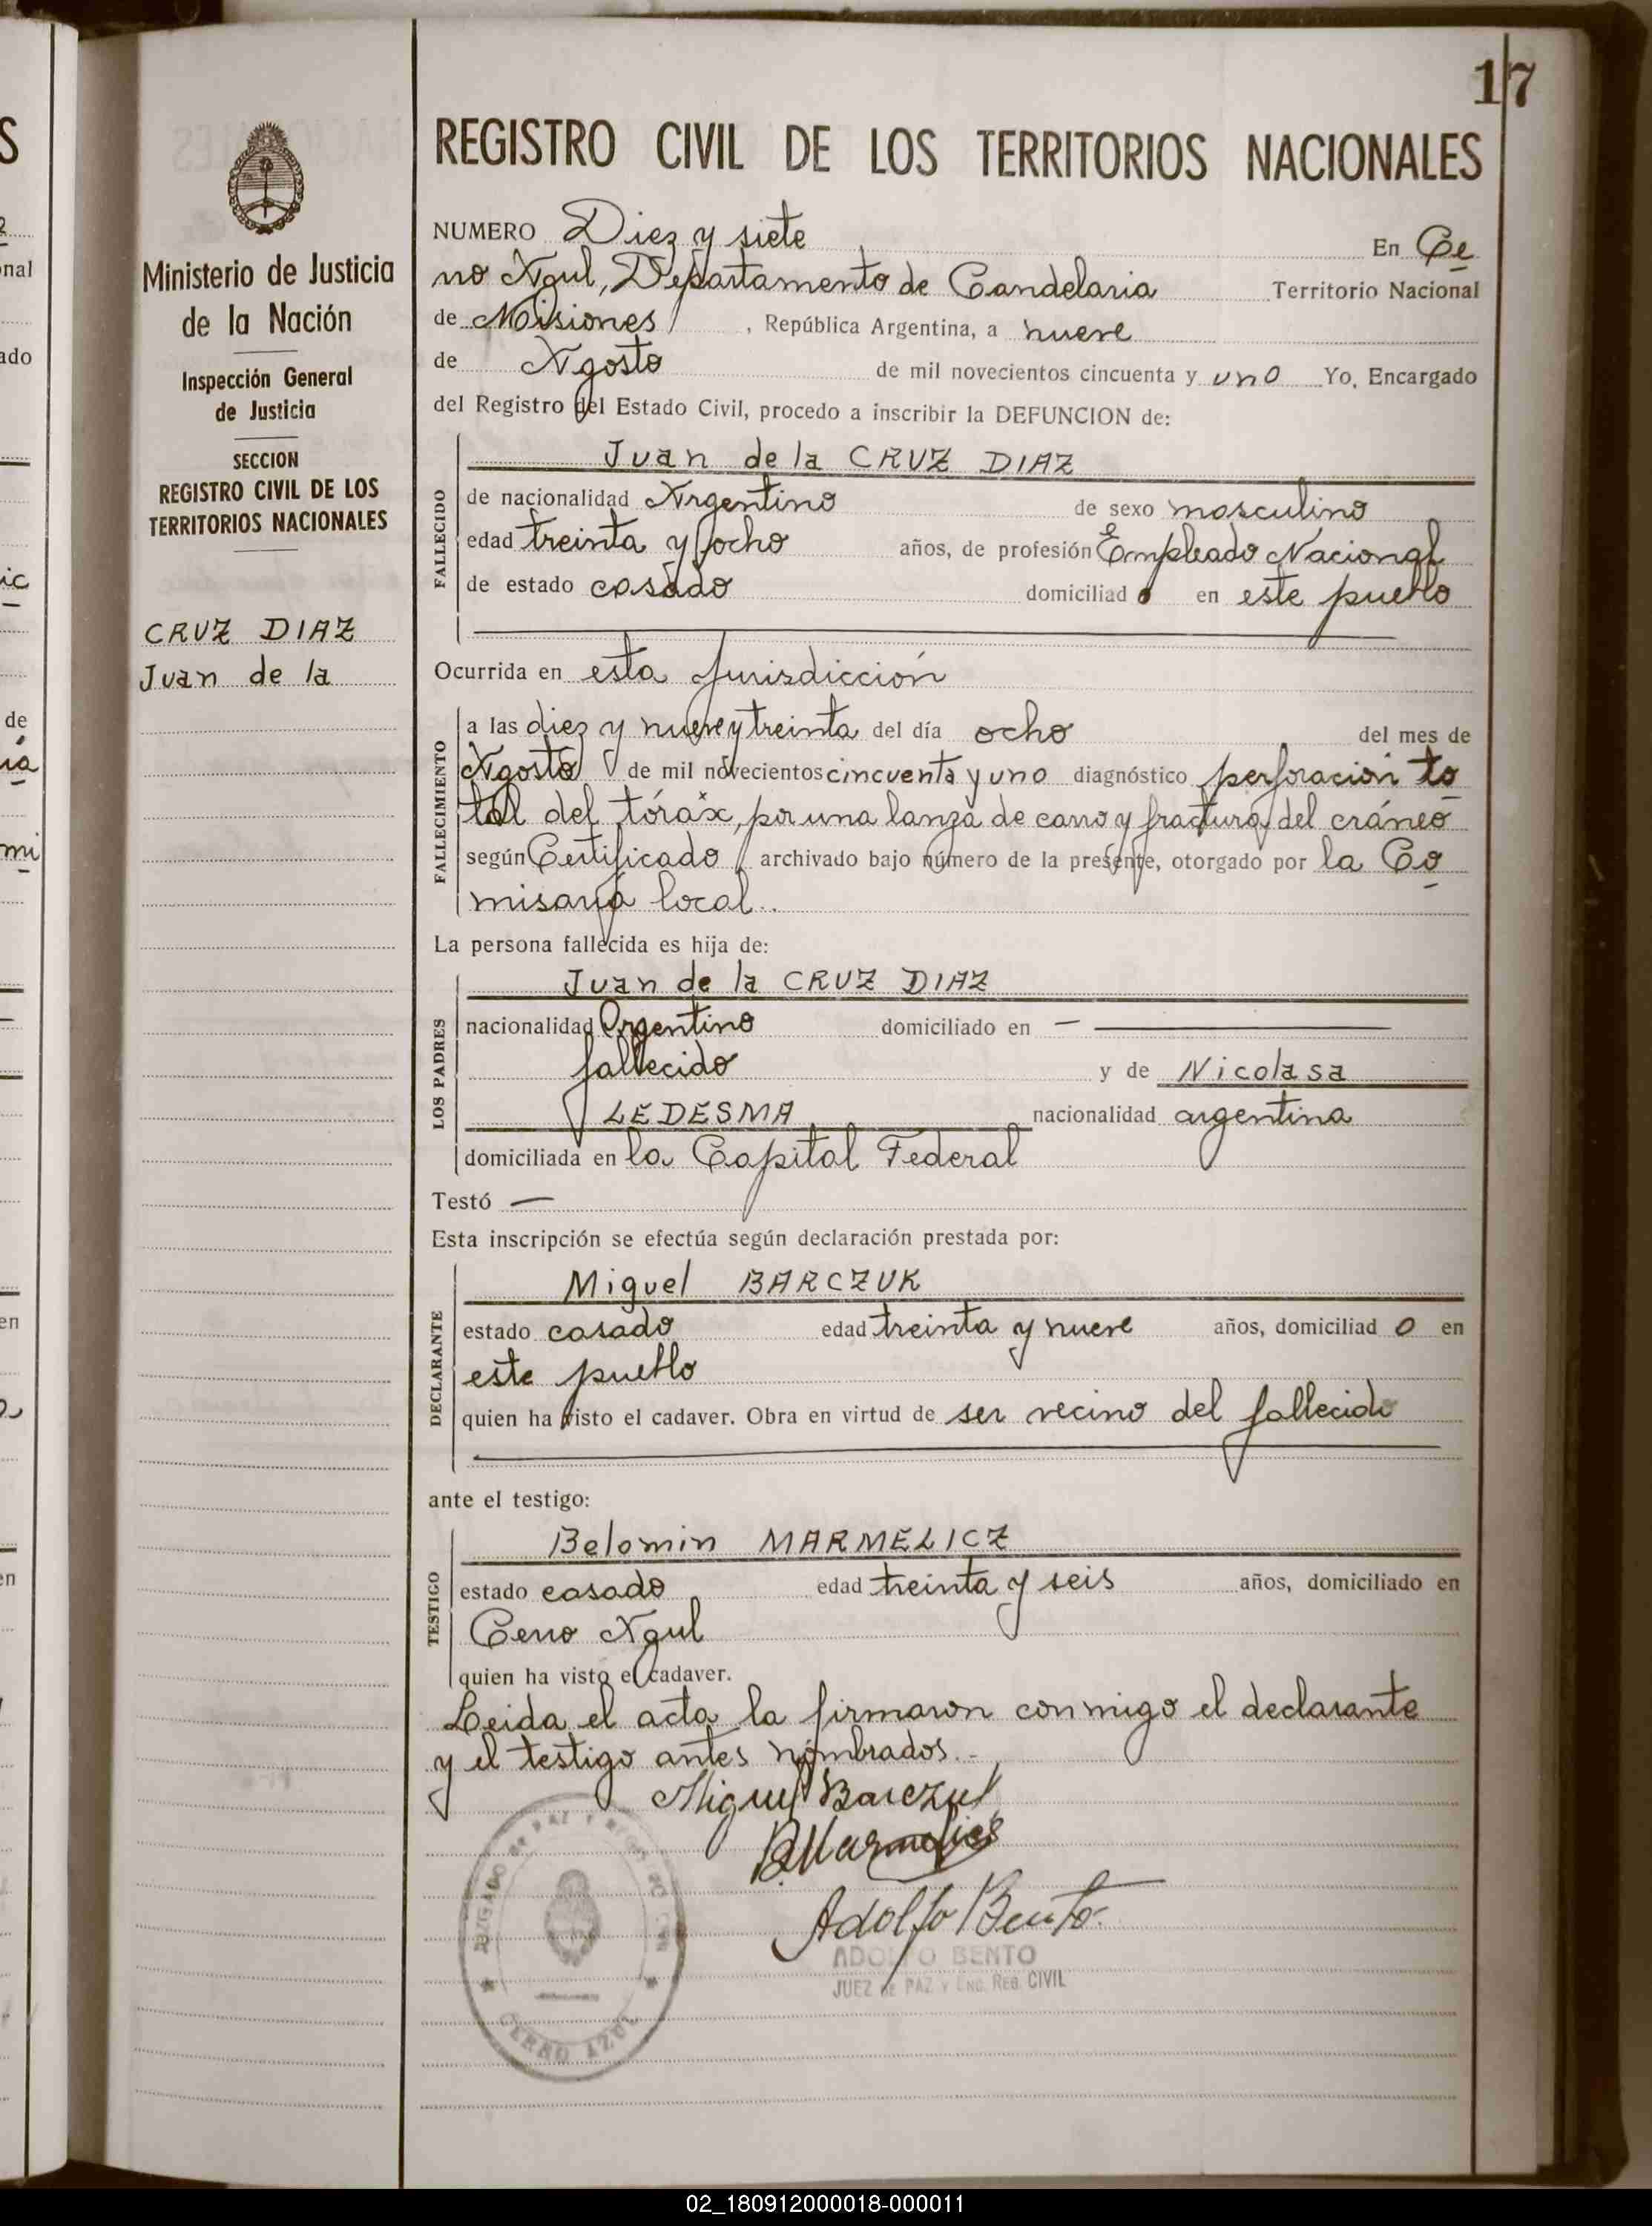 17
REGISTRO CIVIL DE LOS TERRITORIOS NACIONALES
Ministerio de Justicia
de la Nación
Inspección General
de Justicia
SECCION
REGISTRO CIVIL DE LOS
TERRITORIOS NACIONALES
CRUZ DIAZ
Juan de la
NUMERO Diez y siete En Ce
rro Azul, Departamento de Candelaria Territorio Nacional
de Misiones, República Argentina, a nueve
de Agosto de mil novecientos cincuenta y uno Yo, Encargado
del Registro del Estado Civil, procedo a inscribir la DEFUNCION de:
FALLECIDO
Juan de la CRUZ DIAZ
de nacionalidad Argentino de sexo masculino
edad treinta y ocho años, de profesión Empleado Nacional
de estado casado domiciliado en este pueblo
Ocurrida en esta Jurisdicción
FALLECIMIENTO
a las diez y nueve y treinta del día ocho del mes de
Agosto de mil novecientos cincuenta y uno diagnóstico perforación to
tal del tórax, por una lanza de carro y fractura del cráneo
según Certificado archivado bajo número de la presente, otorgado por la Co
misaría local.
La persona fallecida es hija de:
LOS PADRES
Juan de la CRUZ DIAZ
nacionalidad Argentino domiciliado en —
fallecido y de Nicolasa
LEDESMA nacionalidad argentina
domiciliada en la Capital Federal
Testó —
Esta inscripción se efectúa según declaración prestada por:
DECLARANTE
Miguel BARCZUK
estado casado edad treinta y nueve años, domiciliado en
este pueblo
quien ha visto el cadaver. Obra en virtud de ser vecino del fallecido
ante el testigo:
TESTIGO
Belomin MARMELICZ
estado casado edad treinta y seis años, domiciliado en
Cerro Azul
quien ha visto el cadaver.
Leida el acta la firmaron conmigo el declarante
y el testigo antes nombrados.-
Miguel Barczuk
B. Marmelicz
Adolfo Bento
ADOLFO BENTO
JUEZ DE PAZ Y ENC. REG. CIVIL
JUZGADO DE PAZ Y REGISTRO CIVIL
CERRO AZUL
02_180912000018-000011